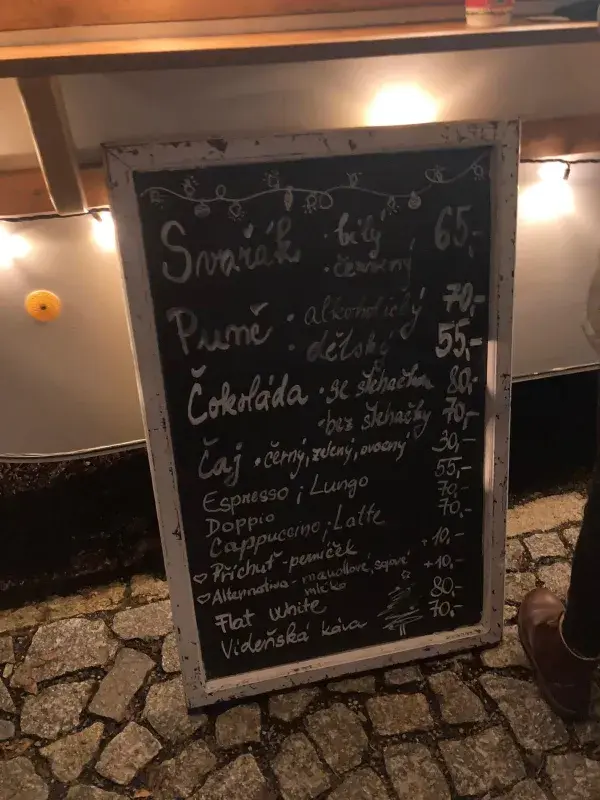 Svařák • bílý 65,-
• červený
Punč • alkoholický 70,-
• dětský 55,-
Čokoláda • se šlehačkou 80,-
• bez šlehačky 70,-
Čaj • černý, zelený, ovocný 30,-
Espresso ; Lungo 55,-
Doppio 70,-
Cappuccino ; Latte 70,-
♡ Příchuť - perníček + 10,-
♡ Alternativa - mandlové, sojové +10,-
mléko
Flat white 80,-
Vídeňská káva 70,-